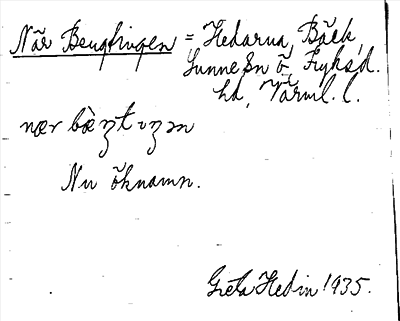 När Bengtingen = Hedarna, Bäck,
Sunne sn ö, Fryksd.
hd, Värml. l.
nær bæ̀ŋtıŋən
Nu öknamn.
Greta Hedin 1935.